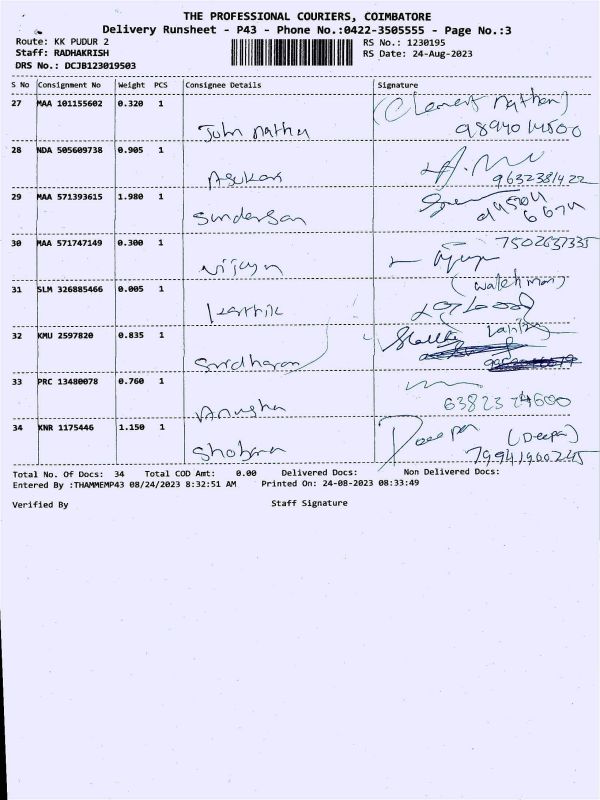 THE PROFESSIONAL COURIERS, COIMBATORE
Delivery Runsheet - P43 - Phone No.:0422-3505555 - Page No.:3
Route: KK PUDUR 2
RS No.: 1230195
Staff: RADHAKRISH
RS Date: 24-Aug-2023
DRS No.: DCJB123019503
S No Consignment No Weight PCS Consignee Details Signature
27 MAA 101155602 0.320 1 John Mathu (Clement Nathan)
9894014500
28 NDA 505609738 0.905 1 Asukas
9632381422
29 MAA 571393615 1.980 1 Sundersan
30 MAA 571747149 0.300 1 Vijayn 7502637335
(watchman)
31 SLM 326885466 0.005 1 karthik
32 KMU 2597820 0.835 1 Sridharan
33 PRC 13480078 0.760 1 Anusha
63823 24600
34 KNR 1175446 1.150 1 Shobana Deepa (Deepa)
799419600245
Total No. Of Docs: 34 Total COD Amt: 0.00 Delivered Docs: Non Delivered Docs:
Entered By :THAMMEMP43 08/24/2023 8:32:51 AM Printed On: 24-08-2023 08:33:49
Verified By Staff Signature